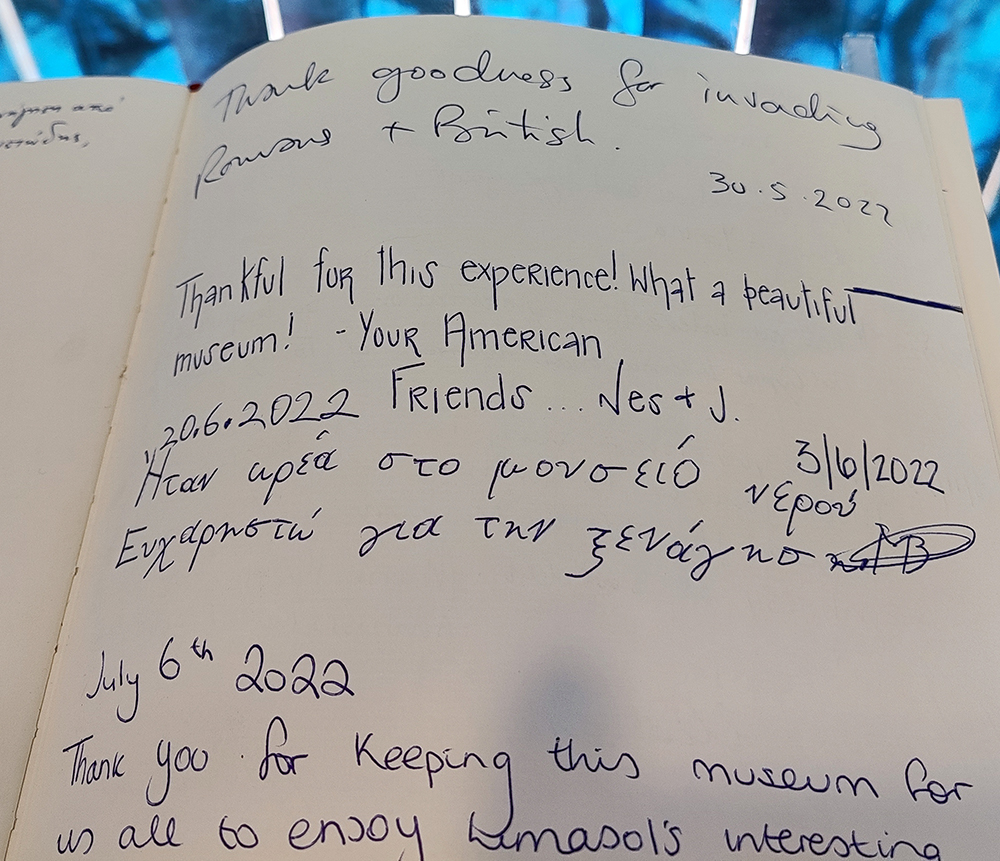 Thank goodness for invading
Romans + British.
30.5.2022
Thankful for this experience! What a beautiful
museum! - Your American
Friends... Nes + J.
20.6.2022
Ήταν ωρέα στο μουσείό
3/6/2022
νέρού
Ευχάρηστώ για την ξενάγησ
July 6th 2022
Thank you for keeping this museum for
us all to enjoy Limasol's interesting